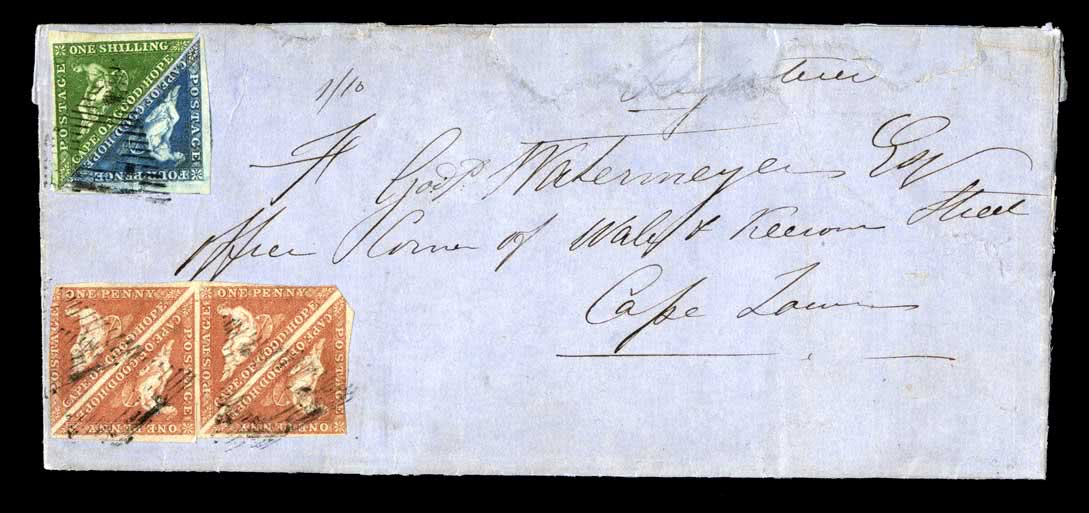 ONE SHILLING
POSTAGE
CAPE OF GOOD HOPE
CAPE OF GOOD HOPE
POSTAGE
FOUR PENCE
1/10
Watermeyer Esq
office Corner of Wale & Keerom Street
Cape Town
ONE PENNY
POSTAGE
CAPE OF GOOD HOPE
CAPE OF GOOD HOPE
POSTAGE
ONE PENNY
ONE PENNY
POSTAGE
CAPE OF GOOD HOPE
CAPE OF GOOD HOPE
POSTAGE
ONE PENNY